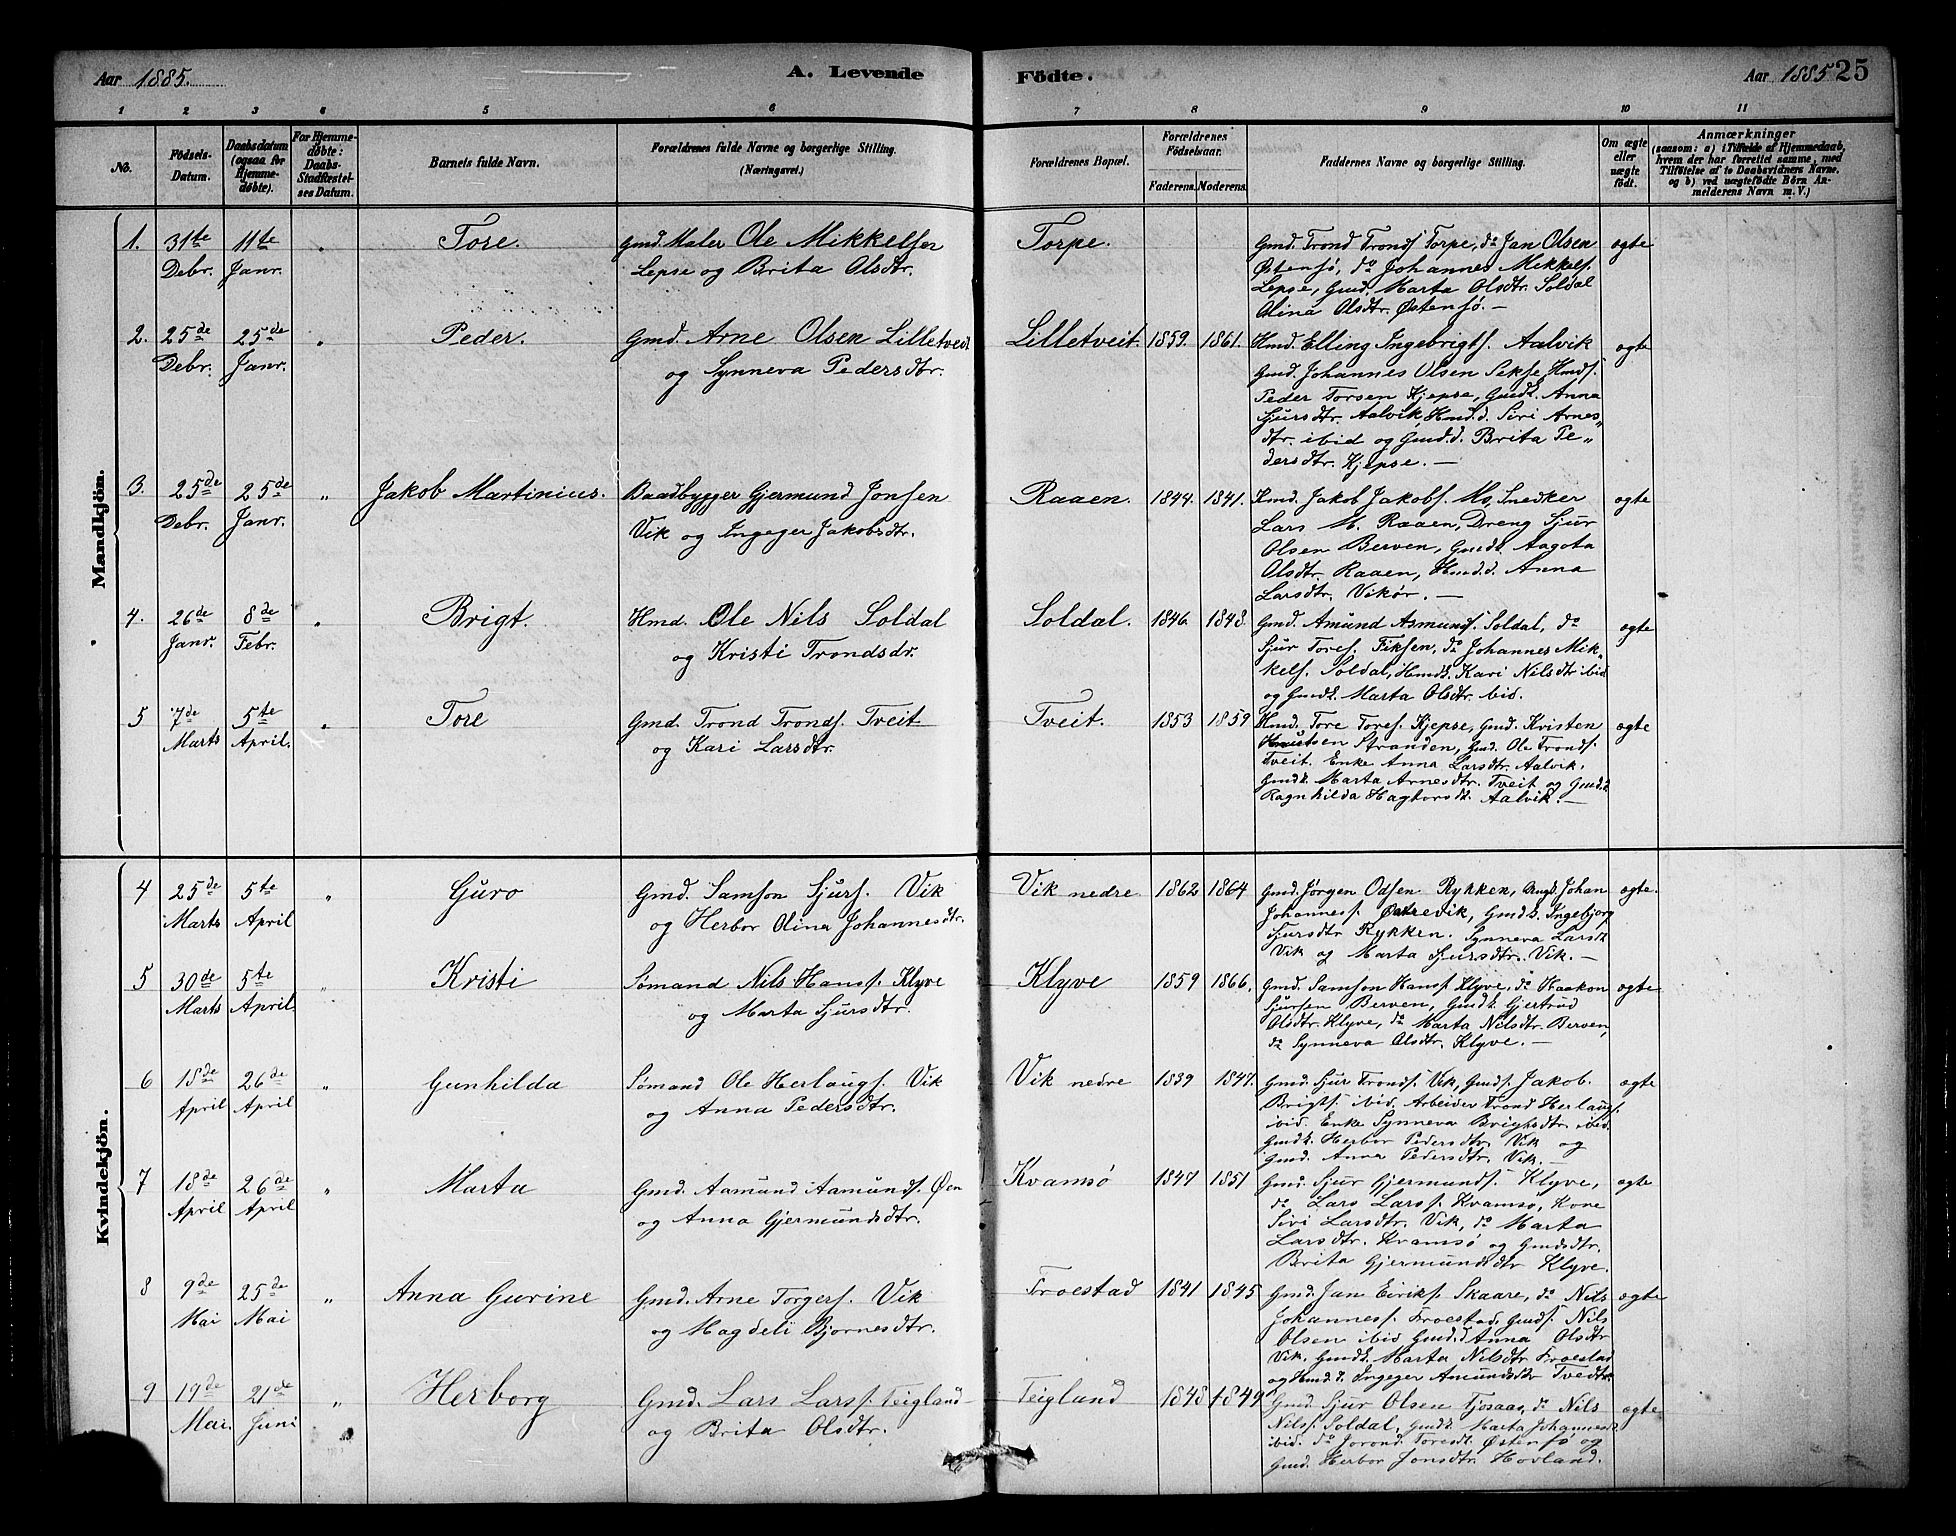 Aar 1885.
A. Levende
Födte.
Aar 1885 25
1 2 3 4 5 6 7 8 9 10 11
No.
Födsels-Datum.
Daabsdatum (ogsaa for Hjemmedøbte).
For Hjemmedøbte: Daabs-Stadfæstelses Datum.
Barnets fulde Navn.
Forældrenes fulde Navne og borgerlige Stilling.
(Næringsvei.)
Forældrenes Bopæl.
Forældrenes Födselsaar.
Faderens. Moderens.
Faddernes Navne og borgerlige Stilling.
Om ægte eller uægte födt.
Anmærkninger
(saasom: a) i Tilfælde af Hjemmedaab, hvem der har forrettet samme, med Tilföielse af to Daabsvidners Navne, og b) ved uægtefödte Börn Anmelderens Navn m. V.)
Mandkjön.
1. 31te Debr. 11te Janr. " Tore. Gmd. Maler Ole Mikkelsen
Lepse og Brita Olsdtr. Torpe.
Gmd. Trond Tronds. Torpe, do Jan Olsen
Østensø, do Johannes Mikkels.
Lepse, Gmd. Marta Olsdtr. Soldal
Olina Olsdtr. Østensø. — ægte
2. 25de Debr. 25de Janr. " Peder. Gmd. Arne Olsen Lilletveit
og Synneva Pedersdtr. Lilletveit. 1859. 1861.
Hmd. Elling Ingebrigts. Aalvik
Gmd. Johannes Olsen Sekse, Hmds.
Peder Torsen Kjepse, Gmdk. Anna
Sjursdtr. Aalvik, Hmd.d. Siri Arnes„
dtr. ibid og Gmd.d. Brita Pe„
dersdtr. Kjepse. — ægte
3. 25de Debr. 25de Janr. " Jakob Martinius. Baadbygger Gjermund Jonsen
Vik og Ingeger Jakobsdtr. Raaen. 1844. 1841.
Hmd. Jakob Jakobs. Mo, Snedker
Lars M. Raaen, Dreng Sjur
Olsen Berven, Gmdk. Aagota
Olsdtr. Raaen, Hmd.d. Anna
Larsdtr. Vikør. — ægte
4. 26de Janr. 8de Febr. " Brigt. Hmd. Ole Nils Soldal
og Kristi Trondsdr. Soldal. 1846. 1848.
Gmd. Amund Asmunds. Soldal, do
Sjur Tores. Fiksen, do Johannes Mik„
kels. Soldal, Hmdk. Kari Nilsdtr ibid
og Gmdk. Marta Olsdtr. ibid. ægte
5 7de Marts 5te April. " Tore Gmd. Trond Tronds. Tveit
og Kari Larsdtr. Tveit. 1853 1859
Hmd. Tore Tores. Kjepse, Gmd. Kristen
Knutsen Stranden, Gmd. Ole Tronds.
Tveit. Enke Anna Larsdtr. Aalvik.
Gmdk. Marta Arnesdtr. Tveit og Gmd.k
Ragnhilda Hagborsdt. Aalvik. — ægte
Kvindekjön.
4 25de Marts 5te April " Guro Gmd. Samson Sjurs. Vik
og Herbor Olina Johannesdtr. Vik nedre 1862 1864
Gmd. Jørgen Odsen Rykken, Drngd. Johan
Johanness. Østrevik, Gmdk. Ingebjorg
Sjursdtr Rykken. Synneva Larsdt
Vik og Marta Sjursdtr. Vik. — ægte.
5 30de Marts 5te April " Kristi Sømand Nils Hanss. Klyve
og Marta Sjursdtr. Klyve 1859 1866.
Gmd. Samson Hans. Klyve, do Haakon
Sjursen Berven, Gmdk. Gjertrud
Olsdtr. Klyve, do Marta Nilsdtr. Berven,
do Synneva Olsdtr. Klyve. — ægte
6 15de April 26de April " Gunhilda Sømand Ole Herlaugs. Vik
og Anna Pedersdtr. Vik nedre 1839 1847.
Gmd. Sjur Tronds. Vik, Gmds. Jakob.
Brigts. ibid. Arbeider Trond Herlaugs.
ibid. Enke Synneva Brigtsdtr. ibid.
Gmdk. Herbor Pedersdtr. Vik og
Gmd. Anna Pedersdtr. Vik. — ægte
7 18de April 26de April " Marta Gmd. Aamund Aamunds. Øen
og Anna Gjermundsdtr. Kvamsø 1847 1851
Gmd. Sjur Gjermunds. Klyve,
do Lars Larss. Kvamsø, Kone
Siri Larsdtr. Vik, do Marta
Larsdtr. Kvamsø og Gmdsdtr.
Brita Gjermundsdtr Klyve. ægte
8 9de Mai 25de Mai " Anna Gurine Gmd. Arne Torgers. Vik
og Magdeli Bjornesdtr. Froestad 1841 1845
Gmd. Jan Eiriks. Skaare, do Nils
Johanness. Froestad, Gmds. Nils
Olsen ibid Gmd.d Anna Olsdtr
Vik. Gmdk. Marta Nilsdtr Froestad
og Hmd.k. Ingeger Amundsdtr Tvedt ægte
9 19de Mai. 21de Juni " Herborg Gmd. Lars Larss. Teigland
og Brita Olsdtr. Teigland 1848 1849
Gmd. Sjur Olsen Tjosaas, do Nils
Nils. Soldal, Gmdk. Marta Johannesdt
ibid. do Jorond Toresdt. Østensø og
Gmd. Herbor Jonsdtr. Hovland. ægte